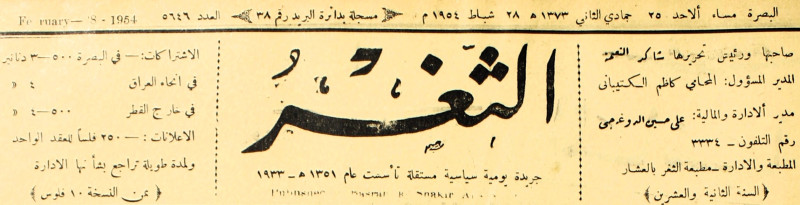 البصرة مساء الاحد ٢٥ جمادي الثاني ١٣٧٣ هـ ٢٨ شباط ١٩٥٤ م مسجلة بدائرة البريد رقم ٣٨ العدد ٥٦٤٦ 8 - 1954
صاحبها ورئيس تحريرها شاكر النعمة
المدير المسؤول: المحامي كاظم الكتيباني
مدير الادارة والمالية: علي حسين
رقم التلفون ـ ٣٣٣٤
المطبعة والادارة ـ مطبعة الثغر بالعشار
﴿ السنة الثانية والعشرين ﴾
الثغر
جريدة يومية سياسية مستقلة تأسست عام ١٣٥١ هـ ـ ١٩٣٣
الاشتراكات: ـ في البصرة ٥٠٠ ـ ٣ دنانير
في انحاء العراق ٤ «
في خارج القطر ٥٠٠ ـ ٤ «
الاعلانات: ـ ٢٥٠ فلساً للعقد الواحد
ولمدة طويلة تراجع بشأنها الادارة
﴿ ثمن النسخة ١٠ فلوس ﴾